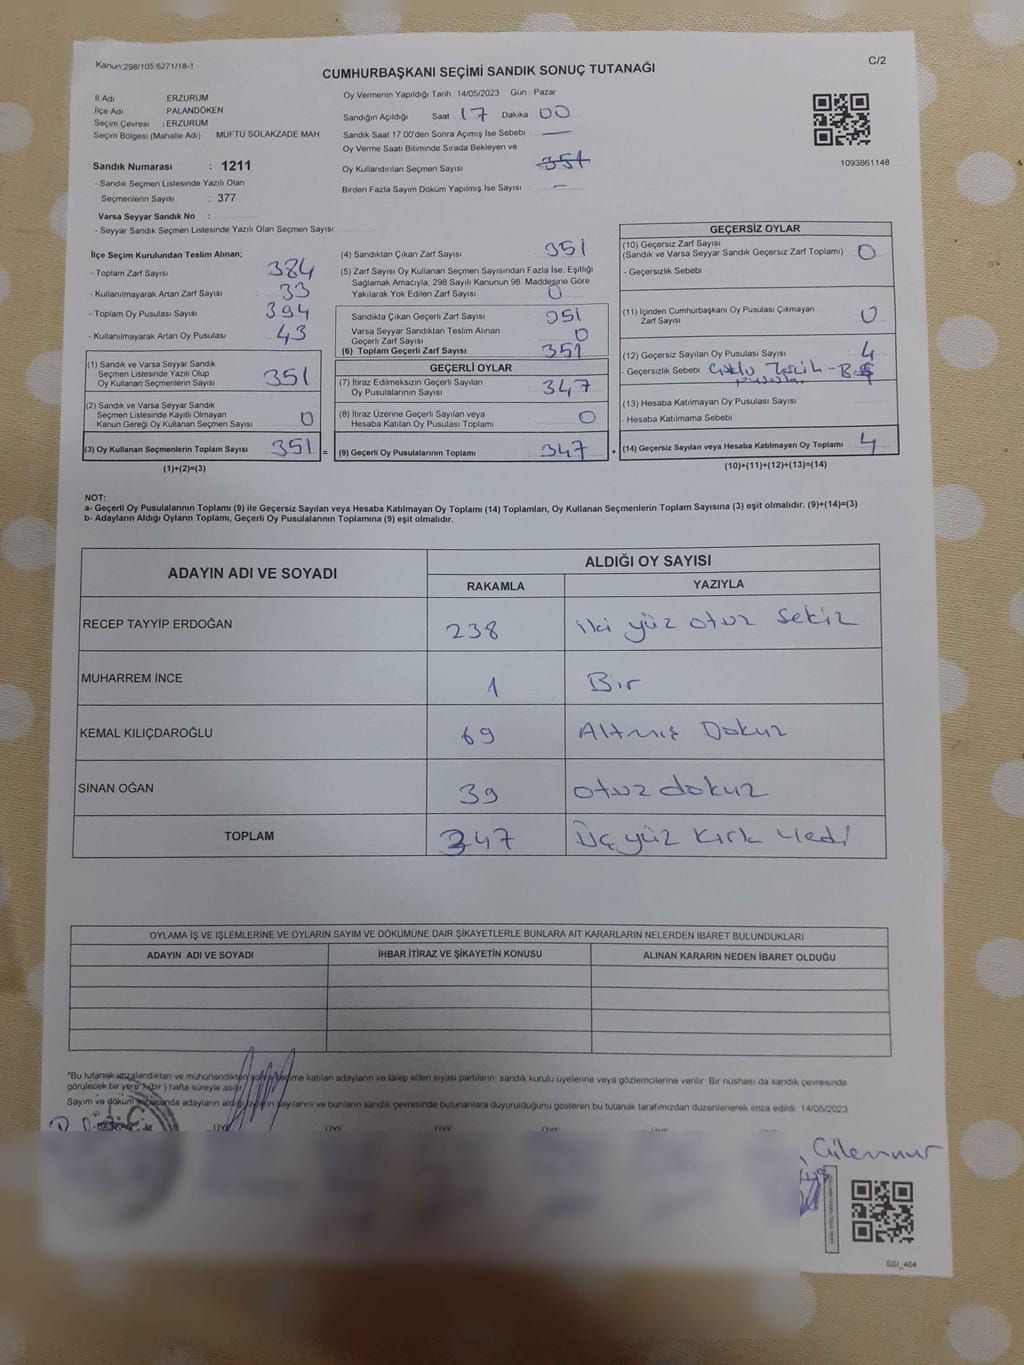 Kanun:298/105 6271/18-1
C/2
CUMHURBAŞKANI SEÇİMİ SANDIK SONUÇ TUTANAĞI
İl Adı ERZURUM
İlçe Adı PALANDÖKEN
Seçim Çevresi : ERZURUM
Seçim Bölgesi (Mahalle Adı) MÜFTÜ SOLAKZADE MAH
Sandık Numarası : 1211
- Sandık Seçmen Listesinde Yazılı Olan
Seçmenlerin Sayısı : 377
Varsa Seyyar Sandık No :
- Seyyar Sandık Seçmen Listesinde Yazılı Olan Seçmen Sayısı:
Oy Vermenin Yapıldığı Tarih : 14/05/2023 Gün : Pazar
Sandığın Açıldığı Saat 17 Dakika 00
Sandık Saat 17.00'den Sonra Açımış İse Sebebi —
Oy Verme Saati Bitiminde Sırada Bekleyen ve
Oy Kullandırılan Seçmen Sayısı 351
Birden Fazla Sayım Döküm Yapılmış İse Sayısı –
1093861148
İlçe Seçim Kurulundan Teslim Alınan;
- Toplam Zarf Sayısı 384
- Kullanılmayarak Artan Zarf Sayısı 33
- Toplam Oy Pusulası Sayısı 394
- Kullanılmayarak Artan Oy Pusulası 43
(1) Sandık ve Varsa Seyyar Sandık
Seçmen Listesinde Yazılı Olup
Oy Kullanan Seçmenlerin Sayısı 351
(2) Sandık ve Varsa Seyyar Sandık
Seçmen Listesinde Kayıtlı Olmayan
Kanun Gereği Oy Kullanan Seçmen Sayısı 0
(3) Oy Kullanan Seçmenlerin Toplam Sayısı 351 =
(1)+(2)=(3)
(4) Sandıktan Çıkan Zarf Sayısı 351
(5) Zarf Sayısı Oy Kullanan Seçmen Sayısından Fazla İse, Eşitliği
Sağlamak Amacıyla, 298 Sayılı Kanunun 98. Maddesine Göre
Yakılarak Yok Edilen Zarf Sayısı 0
Sandıkta Çıkan Geçerli Zarf Sayısı 351
Varsa Seyyar Sandıktan Teslim Alınan
Geçerli Zarf Sayısı 0
(6) Toplam Geçerli Zarf Sayısı 351
GEÇERLİ OYLAR
(7) İtiraz Edilmeksizin Geçerli Sayılan
Oy Pusulalarının Sayısı 347
(8) İtiraz Üzerine Geçerli Sayılan veya
Hesaba Katılan Oy Pusulası Toplamı 0
(9) Geçerli Oy Pusulalarının Toplamı 347 +
GEÇERSİZ OYLAR
(10) Geçersiz Zarf Sayısı
(Sandık ve Varsa Seyyar Sandık Geçersiz Zarf Toplamı) 0
- Geçersizlik Sebebi
(11) İçinden Cumhurbaşkanı Oy Pusulası Çıkmayan
Zarf Sayısı 0
(12) Geçersiz Sayılan Oy Pusulası Sayısı 4
- Geçersizlik Sebebi Çoklu Tercih
(13) Hesaba Katılmayan Oy Pusulası Sayısı
- Hesaba Katılmama Sebebi
(14) Geçersiz Sayılan veya Hesaba Katılmayan Oy Toplamı 4
(10)+(11)+(12)+(13)=(14)
NOT:
a- Geçerli Oy Pusulalarının Toplamı (9) ile Geçersiz Sayılan veya Hesaba Katılmayan Oy Toplamı (14) Toplamları, Oy Kullanan Seçmenlerin Toplam Sayısına (3) eşit olmalıdır. (9)+(14)=(3)
b- Adayların Aldığı Oyların Toplamı, Geçerli Oy Pusulalarının Toplamına (9) eşit olmalıdır.
ADAYIN ADI VE SOYADI ALDIĞI OY SAYISI
RAKAMLA YAZIYLA
RECEP TAYYİP ERDOĞAN 238 iki yüz otuz sekiz
MUHARREM İNCE 1 Bir
KEMAL KILIÇDAROĞLU 69 Altmış Dokuz
SİNAN OĞAN 39 otuz dokuz
TOPLAM 347 Üç yüz kırk Yedi
OYLAMA İŞ VE İŞLEMLERİNE VE OYLARIN SAYIM VE DÖKÜMÜNE DAİR ŞİKAYETLERLE BUNLARA AİT KARARLARIN NELERDEN İBARET BULUNDUKLARI
ADAYIN ADI VE SOYADI İHBAR İTİRAZ VE ŞİKAYETİN KONUSU ALINAN KARARIN NEDEN İBARET OLDUĞU
"Bu tutanak imzalandıktan ve mühürlendikten seçime katılan adayların ve talep eden siyasi partilerin sandık kurulu üyelerine veya gözlemcilerine verilir. Bir nüshası da sandık çevresinde
görülecek bir yere (bir) hafta süreyle asılır
Sayım ve döküm adayların aldığı oyların sayılarını ve bunların sandık çevresinde bulunanlara duyurulduğunu gösteren bu tutanak tarafımızdan düzenlenerek imza edildi. 14/05/2023
ÜYE ÜYE ÜYE ÜYE
SSI_404